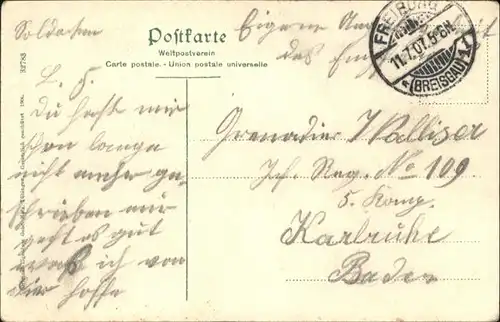 Soldaten
Eigene
des
Postkarte
Weltpostverein
Carte postale. - Union postale universelle
FREIBURG
11.7.07. 5-6N.
* (BREISGAU) 1 *
32783
L. S.
Du hast mir
schon lange
nicht mehr ge-
schrieben mir
geht es gut
was ich von
dir hoffe
Grenadier Walliser
Inf. Reg. No 109
5. Komp.
Karlruhe
Baden